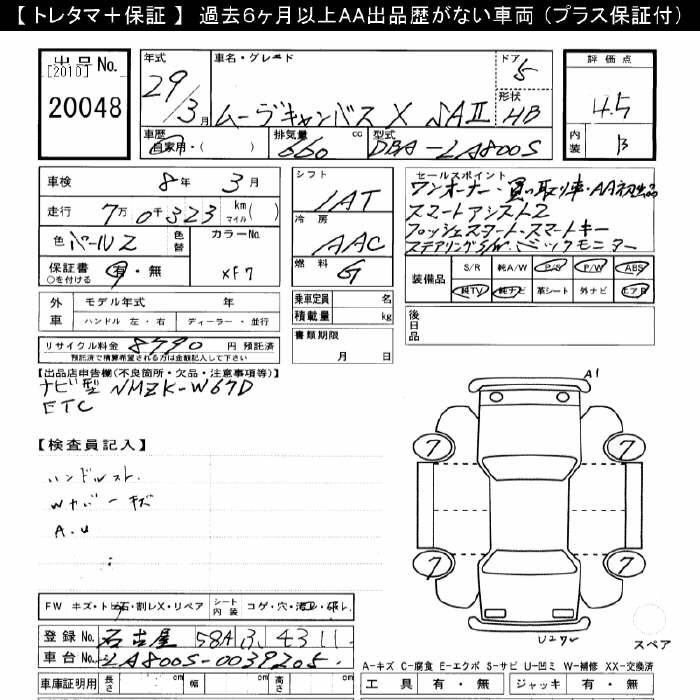 【 トレタマ＋保証 】 過去6ヶ月以上AA出品歴がない車両（プラス保証付）
出品No.
[2010]
20048
年式
29/3月
車名・グレード
ムーヴキャンバス X SAⅡ
ドア
5
形状
HB
車歴
自家用・( )
排気量
660 cc
型式
DBA-LA800S
評価点
4.5
内装
B
車検 8年 3月
走行 7万0千323 km マイル( )
色 パール2
色替
カラーNo.
XF7
保証書 有・無
○を付ける
外車
モデル年式 年
ハンドル 左・右 ディーラー・並行
リサイクル料金 8790 円 預託済
預託済で積算希望される方は金額記入して下さい
シフト
IAT
冷房
AAC
燃料
G
乗車定員 名
積載量 kg
書類期限
月 日
セールスポイント
ワンオーナー・買い取り車・AA初出品
スマートアシスト2
プッシュスタート・スマートキー
ステアリングSW・バックモニター
装備品
S/R 純A/W P/S P/W ABS
純TV 純ナビ 革シート 外ナビ エアB
後日品
【出品店申告欄(不良箇所・欠品・注意事項等)】
ナビ型 NMZK-W67D
ETC
【検査員記入】
ハンドルスレ.
Wカバーキズ
A.U
A1
7 7
7 7
U2
スペア
FW キズ・トビ石・割レX・リペア シート内装 コゲ・穴・汚レ・破レ
登録No. 名古屋 584 4311
車台No. LA800S-0039205
A-キズ C-腐食 E-エクボ S-サビ U-凹ミ W-補修 XX-交換済
車庫証明用 長さ 幅 高さ
工具 有・無 ジャッキ 有・無